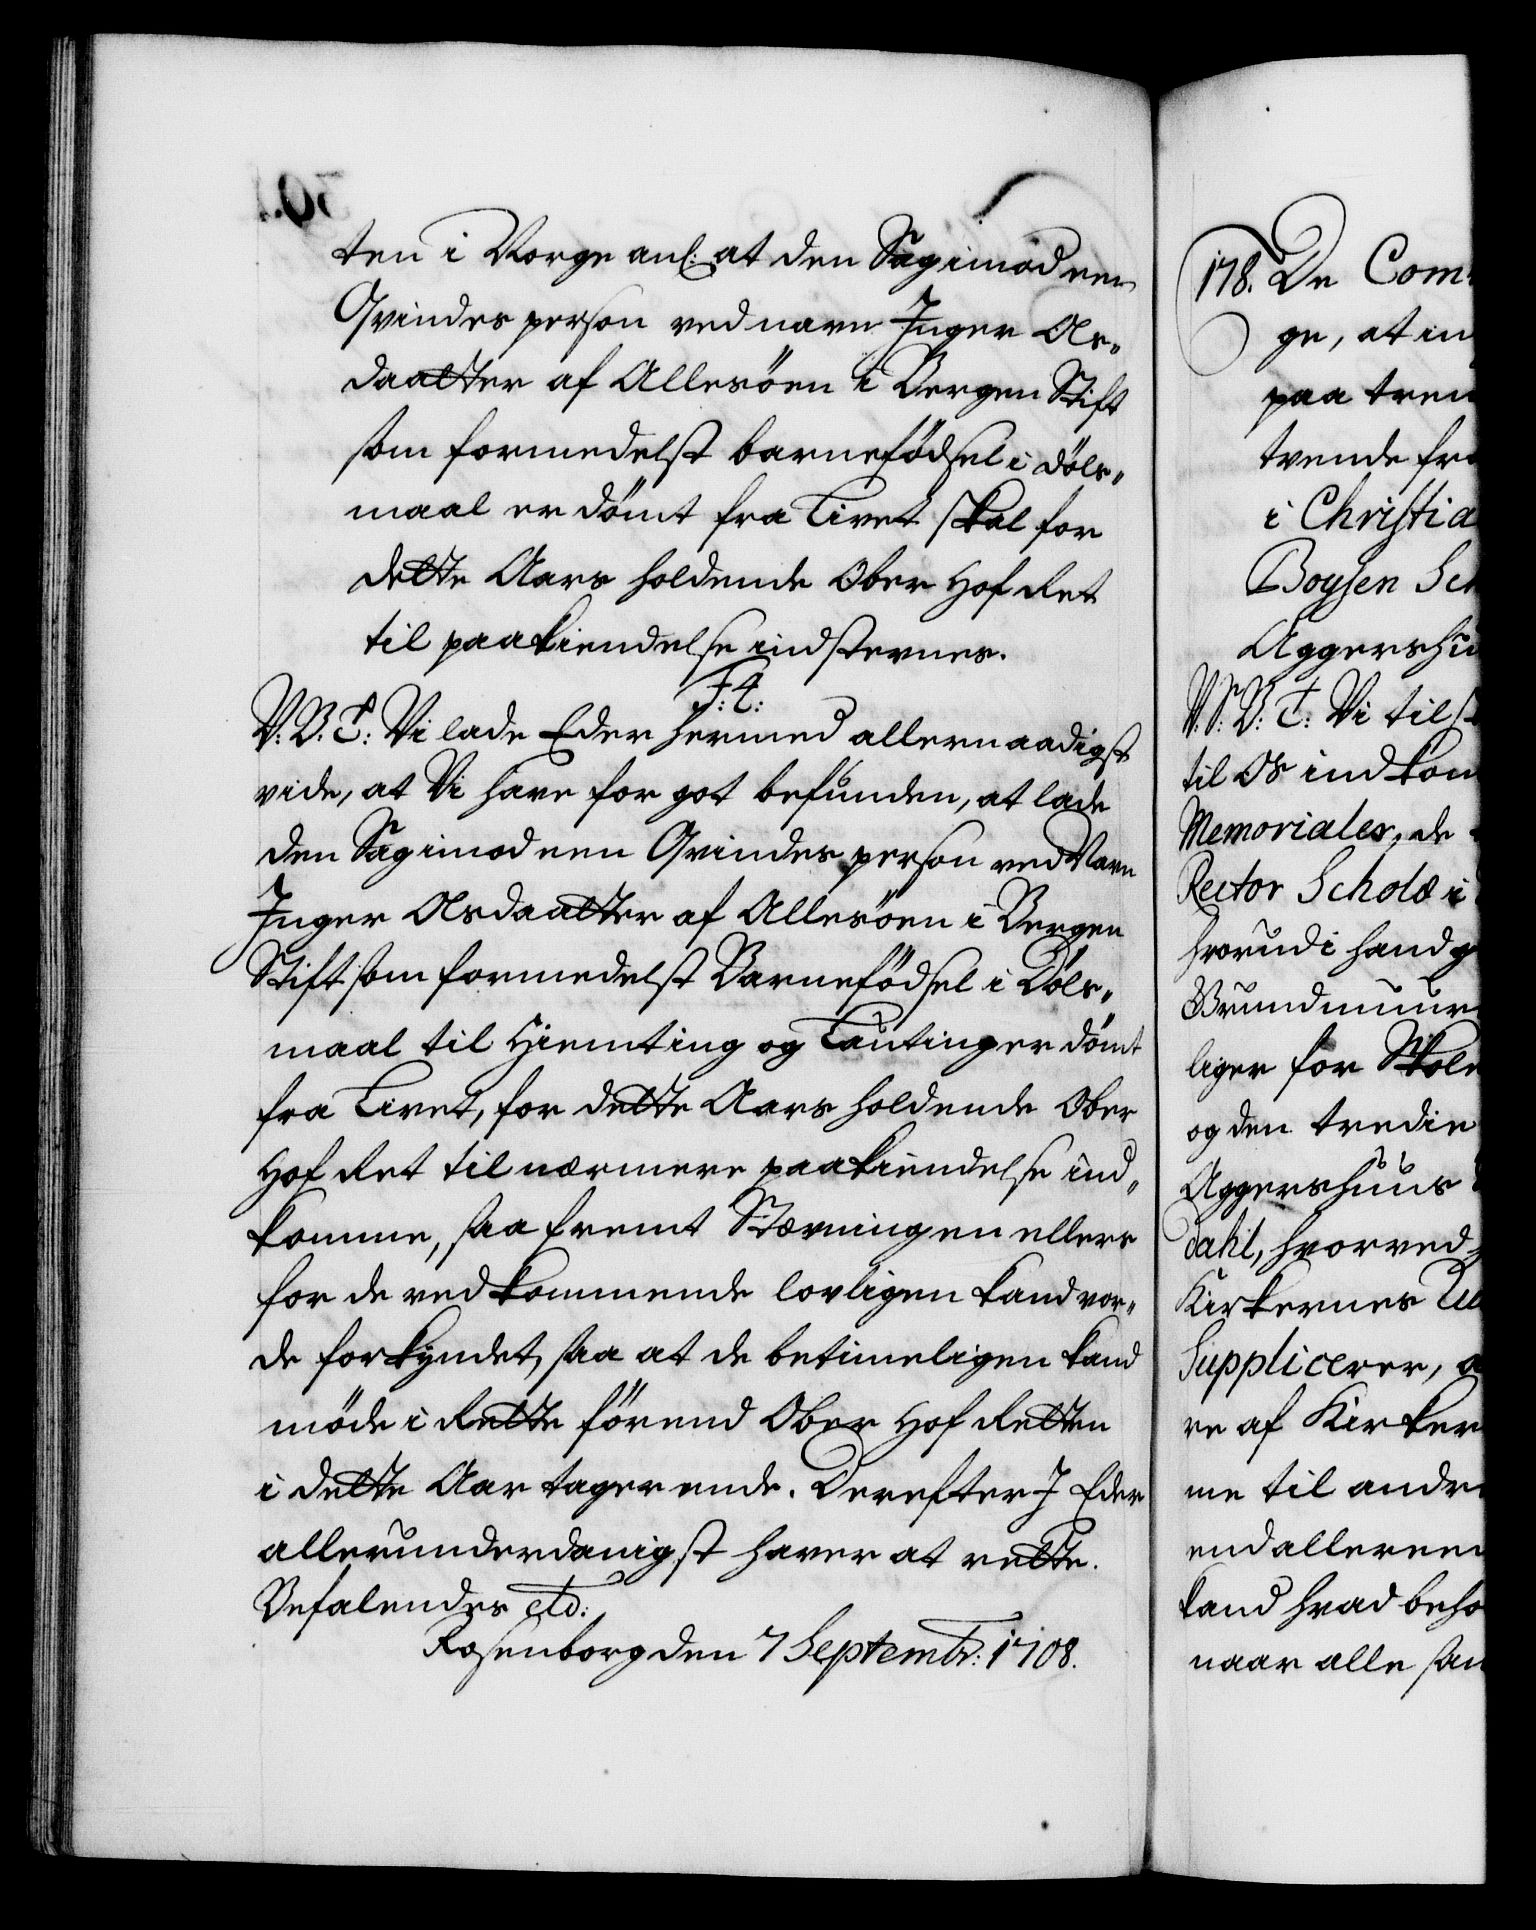 ten i Norge anl: at den Sag imod een
Qvindes person ved navn Inger As„
daatter af Allesöen i Bergen Stift
som formedelst barnefödsel i döls„
maal er dömt fra Livet skal for
dette Aars holdende Ober Hof Ret
til paakiendelse indstevnes.
F: 4:
V. B. T: Vi lade Eder hermed allernaadigst
vide, at Vi have for got befunden, at lade
den Sag imod een Qvindes person ved Navn
Inger Asdaatter af Allesöen i Bergen
Stift som formedelst Barnefödsel i Döls„
maal til Hiemting og Lauting er dömt
fra Livet, for dette Aars holdende Ober
Hof Ret til nærmere paakiendelse ind„
komme, saa fremt Stævningen ellers
for de vedkommende lovligen kand vor„
de forkyndet, saa at de betimeligen kand
möde i Rette förend Ober Hof Retten
i dette Aar tager ende. Derefter I Eder
allerunderdanigst haver at rette.
Befalendes etc:
Rosenborg den 7 Septembr: 1708.
178. De Com
ge, at in
paa tven
tvende fra
i Christia
Boysen Sch
Aggershu
V. S: B: T: Vi tilst
til Os indkom
Memorialer, de
Rector Scholæ i
hvorudi hand g
Grundmuur
liger for Skole
og den tredie
Aggershuus
dahl, hvorved
Kirkernes
Supplicerer, a
re af Kirker
me til andr
end allereen
kand hvad beho
naar alle saa